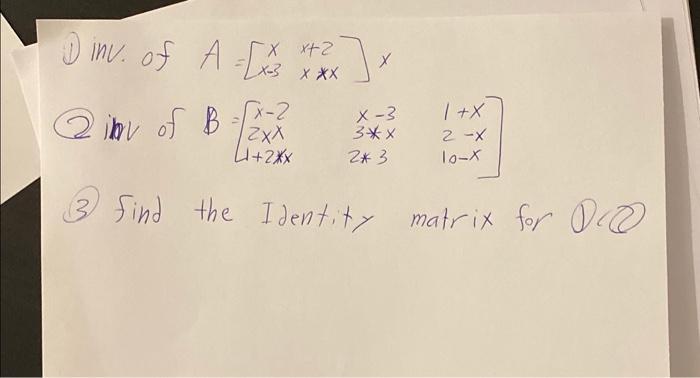 ① inv. of A = [ x x+2
x-3 x *x ] x
② inv of B = [ x-2 x-3 1+x
2xx 3*x 2-x
1+2*x 2*3 10-x ]
③ find the Identity matrix for ①<②